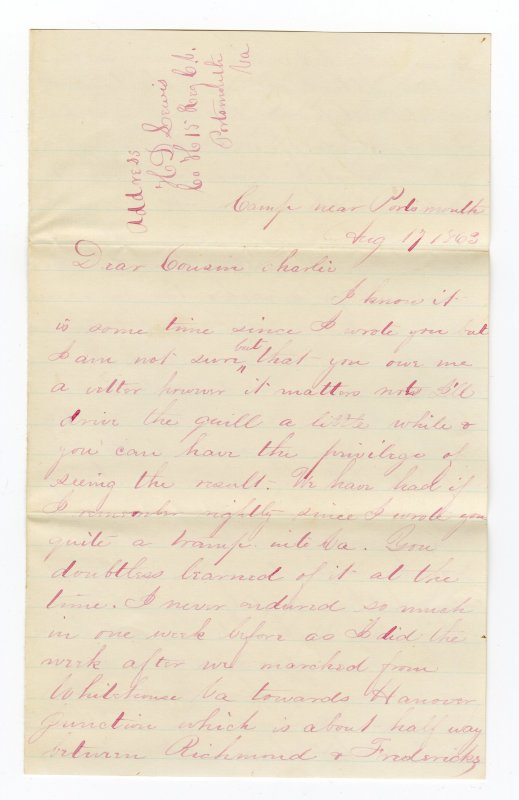 Address
H D Lewis
Co H 15 Reg C.V.
Portsmouth
Va
Camp near Portsmouth
Aug 17 1863
Dear Cousin Charlie
I know it
is some time since I wrote you but
I am not sure but that you owe me
a letter however it matters not I'll
drive the quill a little while &
you can have the privilege of
seeing the result. We have had if
I remember rightly since I wrote you
quite a tramp into Va. You
doubtless learned of it at the
time. I never endured so much
in one week before as I did the
week after we marched from
Whitehouse Va towards Hanover
Junction which is about half way
between Richmond & Fredericks